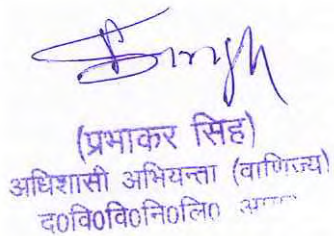 Singh
(प्रभाकर सिंह)
अधिशासी अभियन्ता (वाणिज्य)
द०वि०वि०नि०लि०